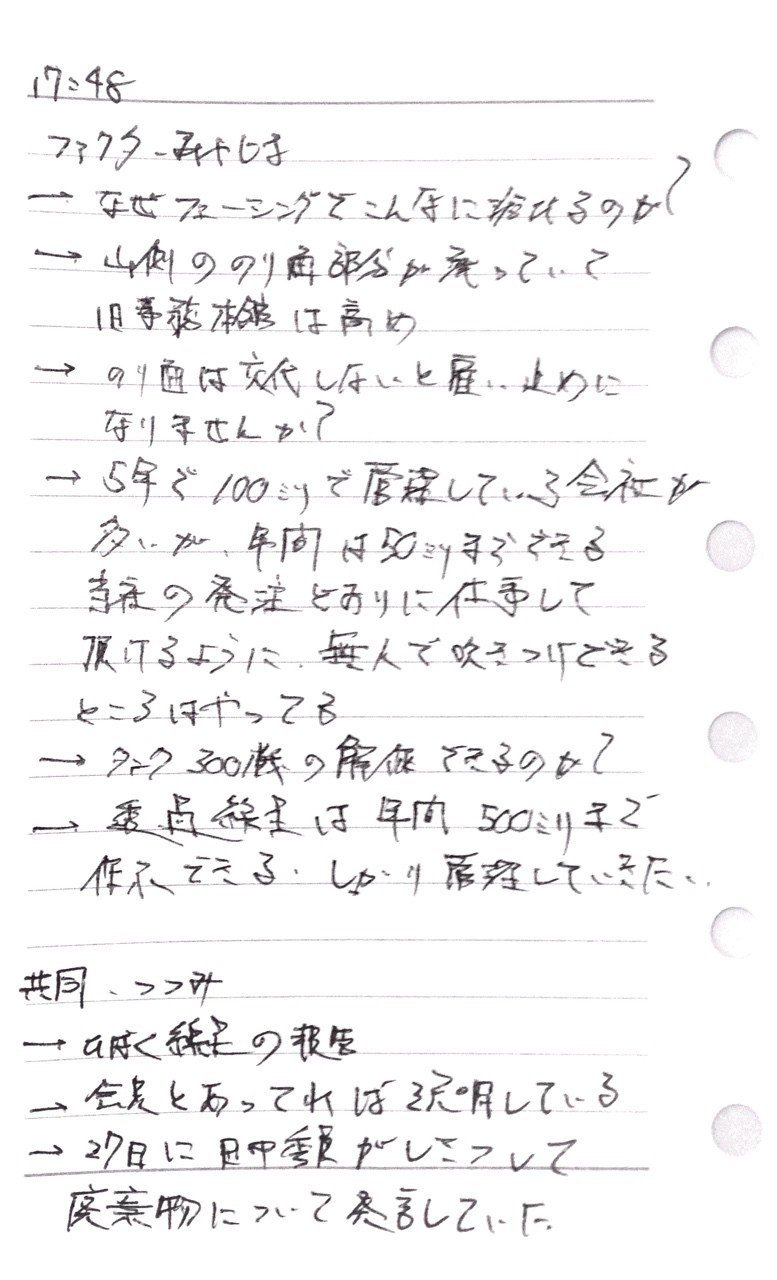 17:48
ファクタ みやじま
→ なぜフェーシングでこんなに減せるのか?
→ 山側ののり面部分が残っていて
旧事務本館は高め
→ のり面は交代しないと雇い止めに
なりませんか?
→ 5年で100ミリで管理している会社が
多いが、年間は50ミリまでできる
当社の発注どおりに仕事して
頂けるように、無人で吹きつけできる
ところはやってる
→ タンク300機の解体できるのか?
→ 線量は年間500ミリまで
できる. しっかり管理していきたい.
共同、つつみ
→ 被ばく線量の報告
→ 会見とあってれば説明している
→ 27日に田中委員がしさつして
廃棄物について発言していた.